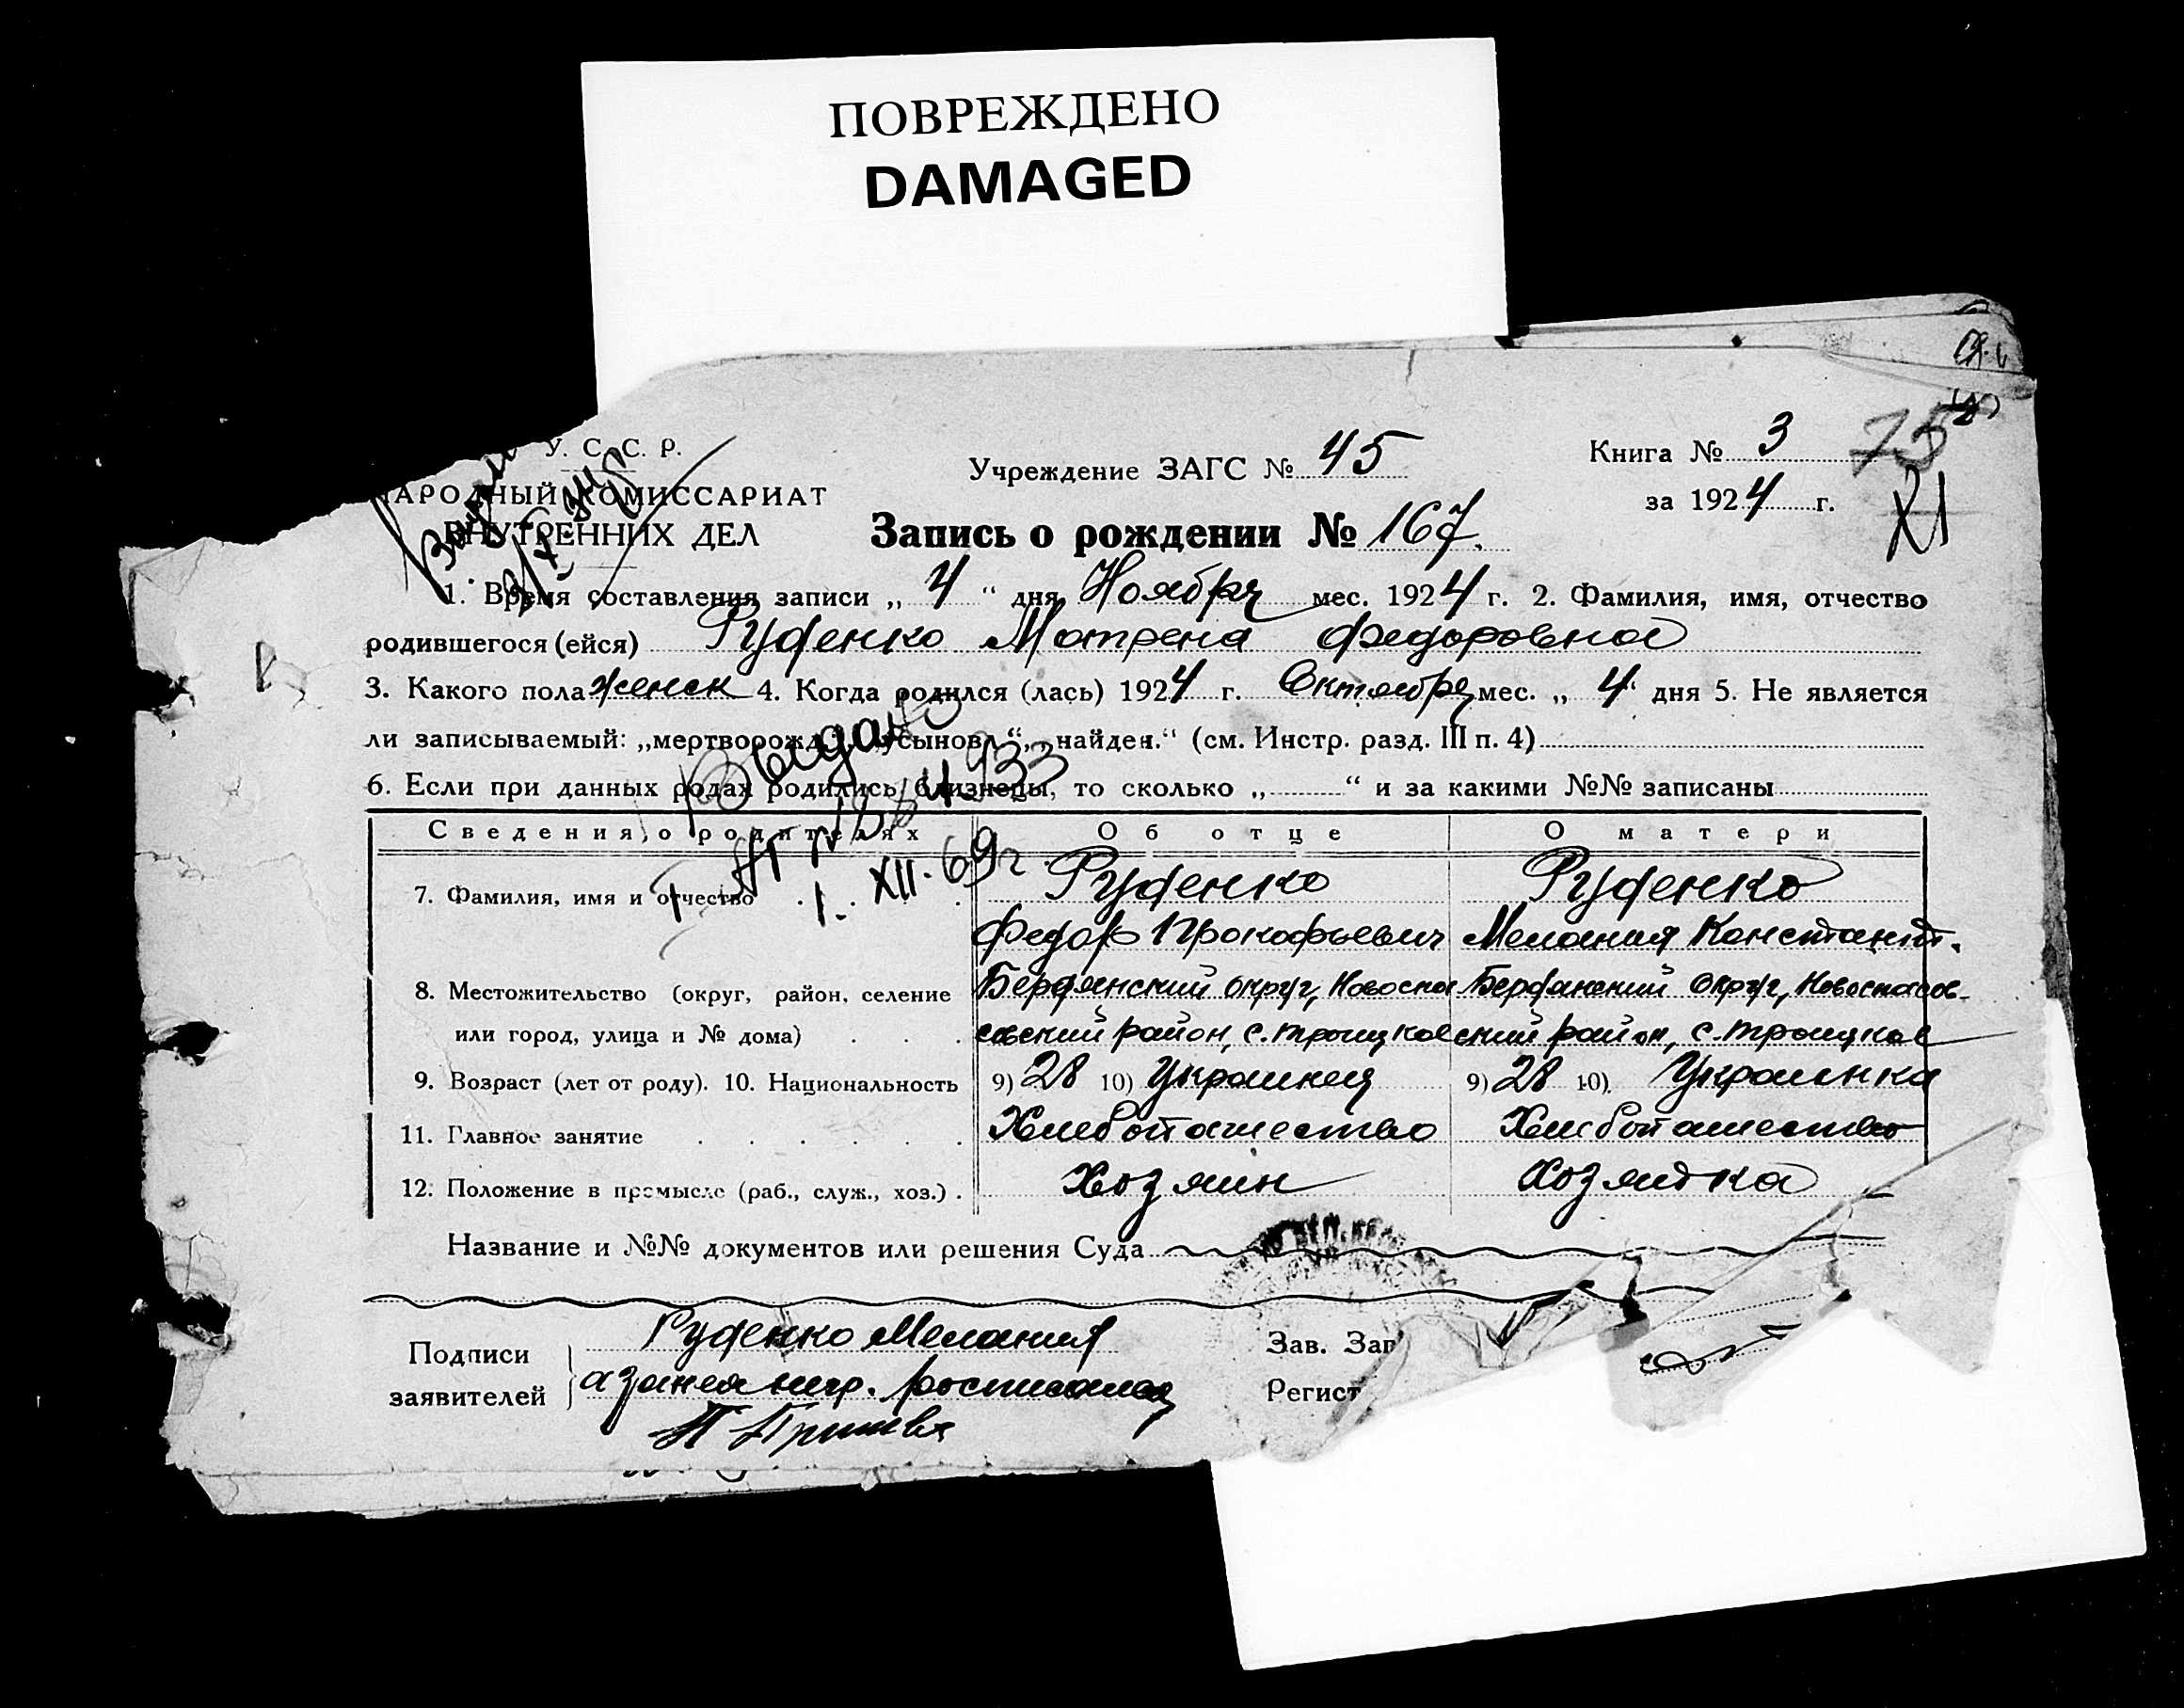 ПОВРЕЖДЕНО
DAMAGED
У. С. С. Р.
АРОДНЫЙ КОМИССАРИАТ
ВНУТРЕННИХ ДЕЛ
Учреждение ЗАГС № 45
Книга № 3
75
за 1924 г.
XI
Запись о рождении № 167.
1. Время составления записи „ 4 “ дня Ноября мес. 1924 г. 2. Фамилия, имя, отчество
родившегося (ейся) Руденко Матрена Федоровна
3. Какого пола женск 4. Когда родился (лась) 1924 г. Октября мес. „ 4 “ дня 5. Не является
ли записываемый: „мертворожд.“, „усыновл.“, „найден.“ (см. Инстр. разд. III п. 4)
6. Если при данных родах родились близнецы, то сколько „ “ и за какими №№ записаны
Выдано
I. XII. 69 г
Сведения о родителях Об отце О матери
7. Фамилия, имя и отчество Руденко Руденко
Федор Прокофьевич Мелания Констант.
8. Местожительство (округ, район, селение Бердянский округ, Новоспа Бердянский округ, Новоспасов-
или город, улица и № дома) совский район, с. Троицкое ский район, с. Троицкое
9. Возраст (лет от роду). 10. Национальность 9) 28 10) Украинец 9) 28 10) Украинка
11. Главное занятие Хлебопашество Хлебопашество
12. Положение в промысле (раб., служ., хоз.) Хозяин Хозяйка
Название и №№ документов или решения Суда
Подписи
заявителей
Руденко Мелания
а за нея негр. росписался
Зав. Заг
Регист